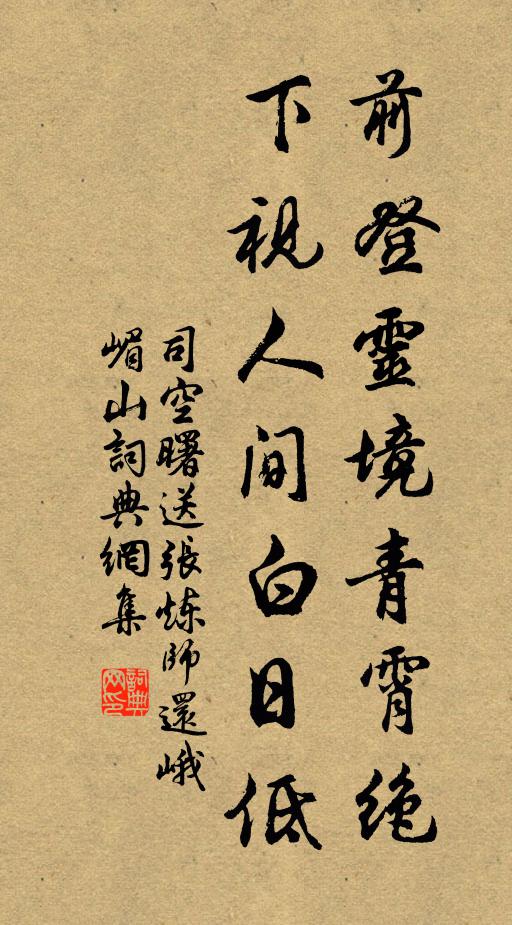 前登靈境青霄絶
下視人间白日低
司空曙送張炼師還峨
嵋山詞典網集
詞典
网印